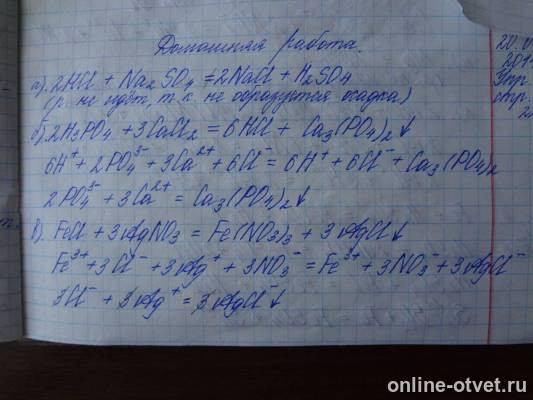 Домашняя работа.
а). 2HCl + Na2SO4 = 2NaCl + H2SO4
(р. не идёт, т.к. не образуется осадка)
б) 2H3PO4 + 3CaCl2 = 6HCl + Ca3(PO4)2↓
6H⁺ + 2PO4³⁻ + 3Ca²⁺ + 6Cl⁻ = 6H⁺ + 6Cl⁻ + Ca3(PO4)2
2PO4³⁻ + 3Ca²⁺ = Ca3(PO4)2↓
в). FeCl + 3AgNO3 = Fe(NO3)3 + 3AgCl↓
Fe³⁺ + 3Cl⁻ + 3Ag⁺ + 3NO3⁻ = Fe³⁺ + 3NO3⁻ + 3AgCl⁻
3Cl⁻ + 3Ag⁺ = 3AgCl⁻↓
20.0
Упр
стр.
online-otvet.ru